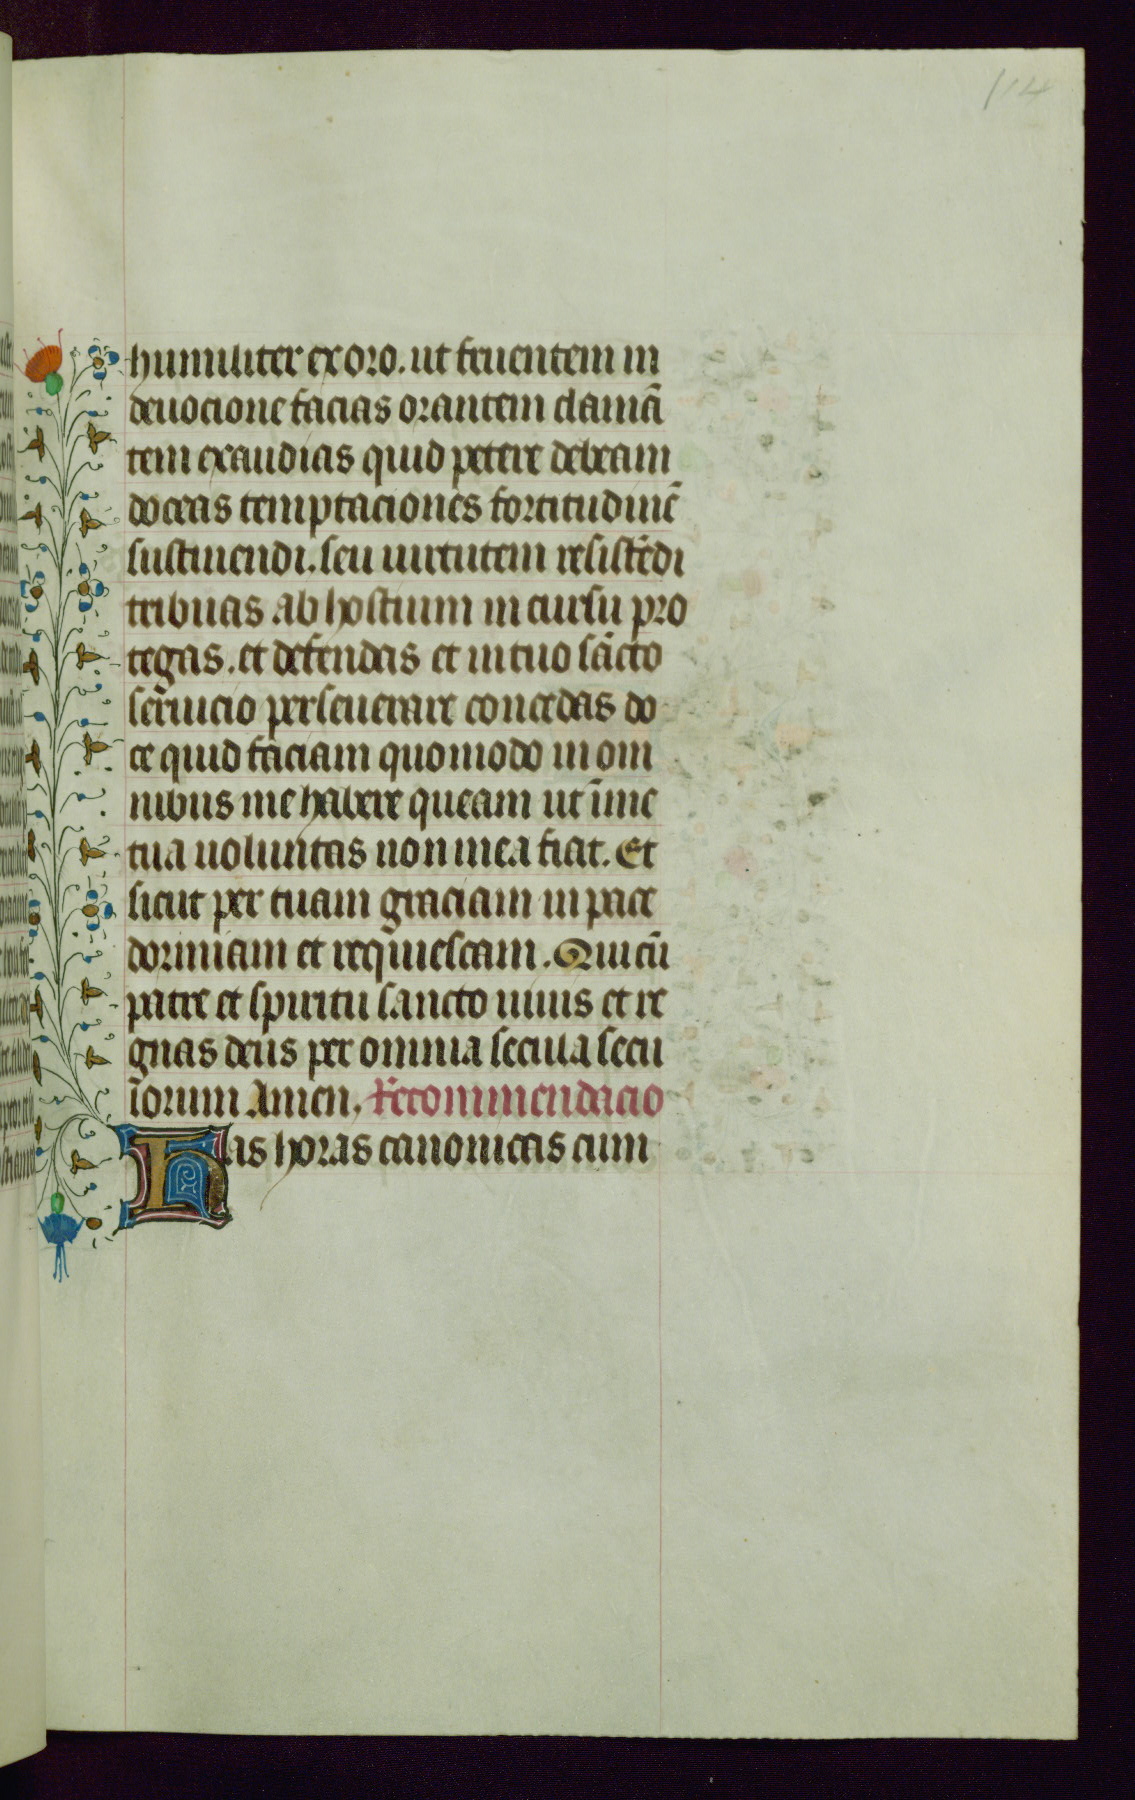 114
humiliter exoro. ut feruentem in
deuocione facias orantem clamā
tem exaudias quid petere debeam
doceas temptaciones fortitudinē
sustinendi. seu uirtutem resistēdi
tribuas ab hostium incursu pro
tegas. et defendas et in tuo sācto
seruicio perseuerare concedas do
ce quid faciam quomodo in om
nibus me habere queam ut ī me
tua uoluntas non mea fiat. Et
sicut per tuam graciam in pace
dormiam et requiescam. Qui cū
patre et spiritu sancto uiuis et re
gnas deus per omnia secula secu
lorum Amen. Recommendacio
Has horas canonicas cum